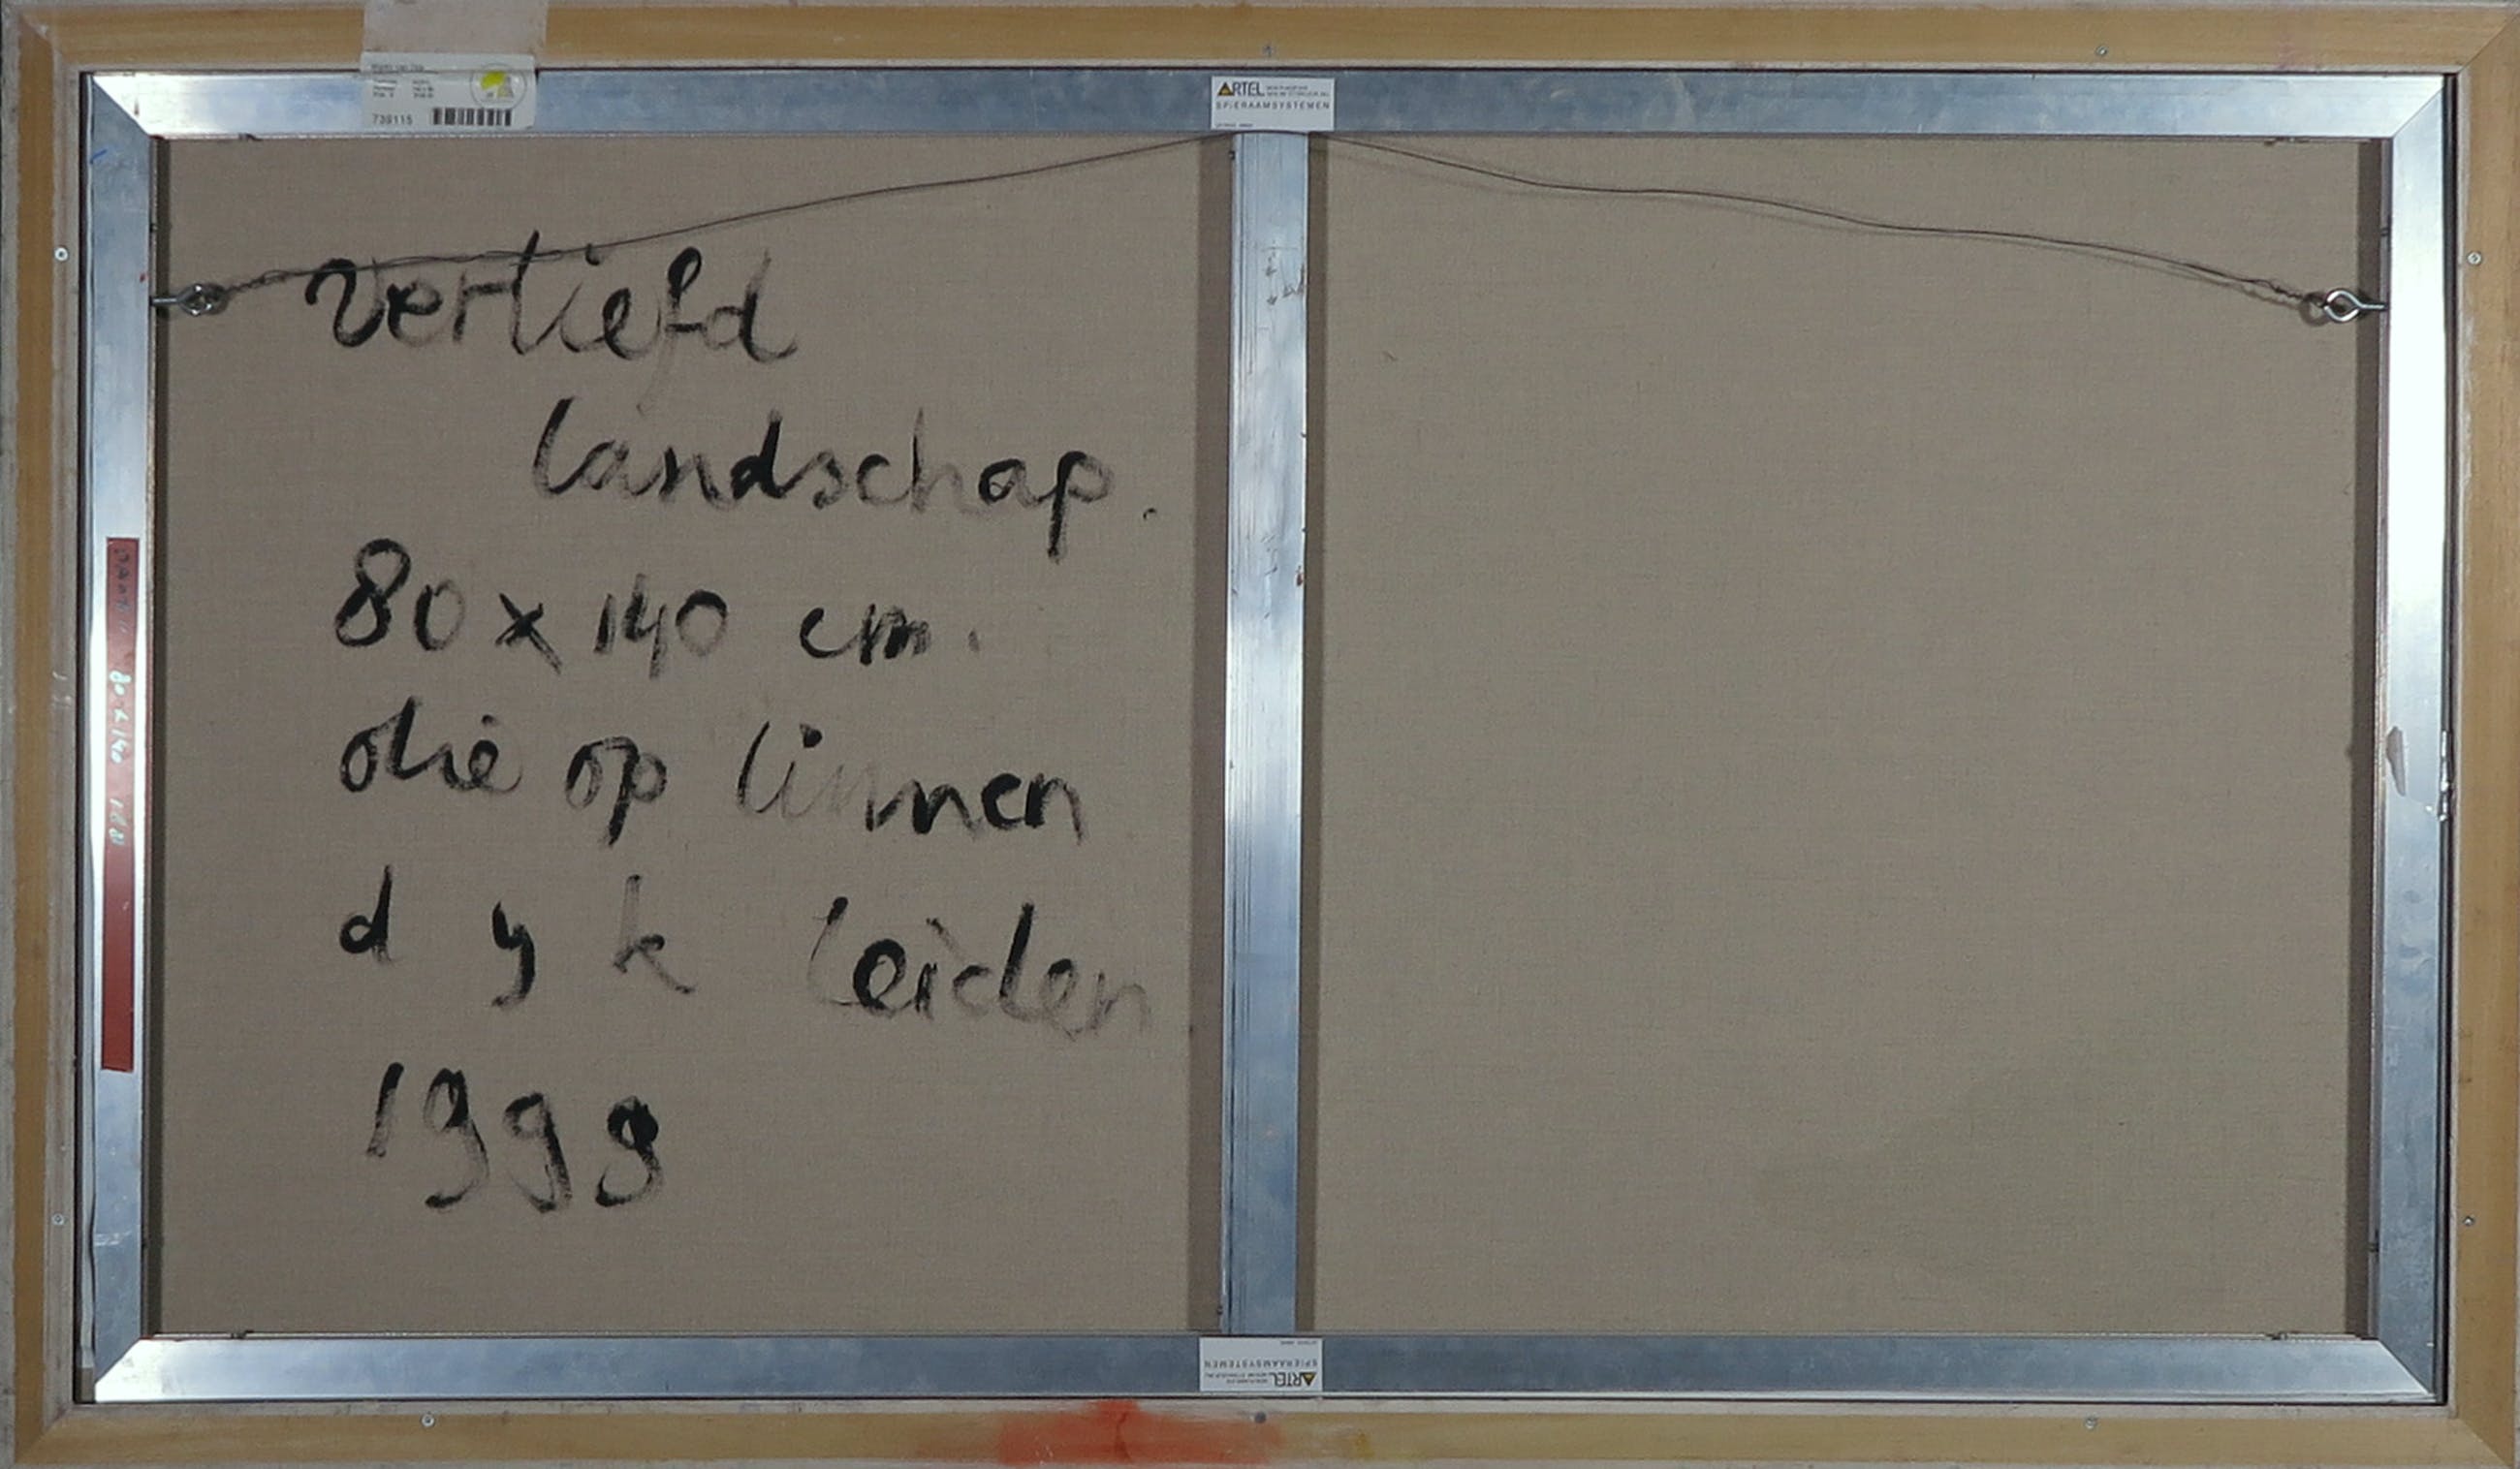 739115
ARTEL
SPIERAAMSYSTEMEN
verliefd
landschap.
80 x 140 cm.
olie op linnen
d y k leiden
1999
80 x 140
ARTEL
SPIERAAMSYSTEMEN